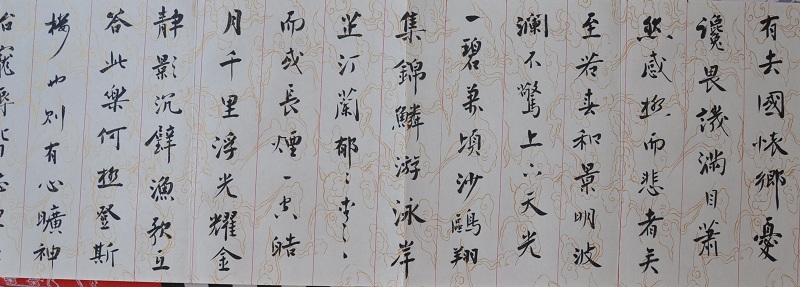 有去國懷鄉憂
讒畏譏滿目蕭
然感極而悲者矣
至若春和景明波
瀾不驚上下天光
一碧萬頃沙鷗翔
集錦鱗游泳岸
芷汀蘭郁〻青〻
而或長煙一空皓
月千里浮光耀金
静影沉璧漁歌互
答此樂何極登斯
樓也則有心曠神
寵辱皆